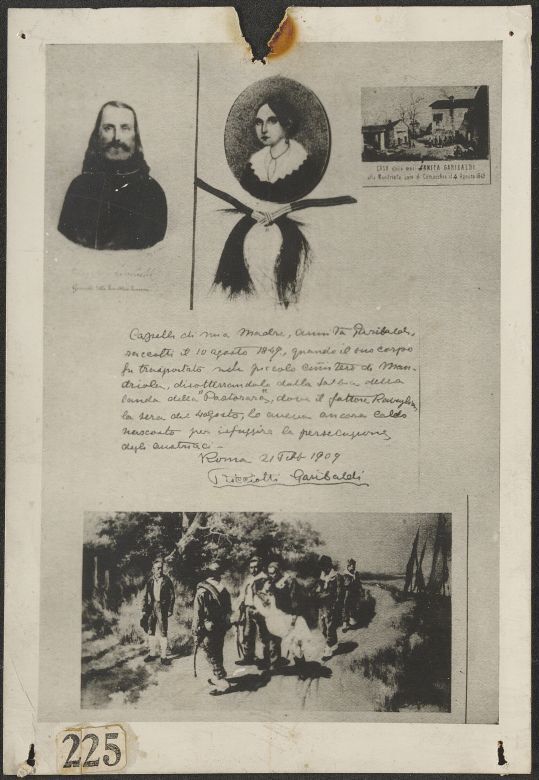 CASA dove morì ANITA GARIBALDI
alla Mandriola com. di Comacchio il 4 Agosto 1849
Capelli di mia Madre, Anita Garibaldi,
raccolti il 10 agosto 1849, quando il suo corpo
fu trasportato nel piccolo cimitero di Man-
driola, disotterrandola dalla sabbia della
landa della "Pastorara", dove il fattore Ravaglia,
la sera del 4 agosto, lo aveva ancora caldo
nascosto per isfuggire la persecuzione
degli austriaci –
Roma 21 Febb 1909
Ricciotti Garibaldi
225